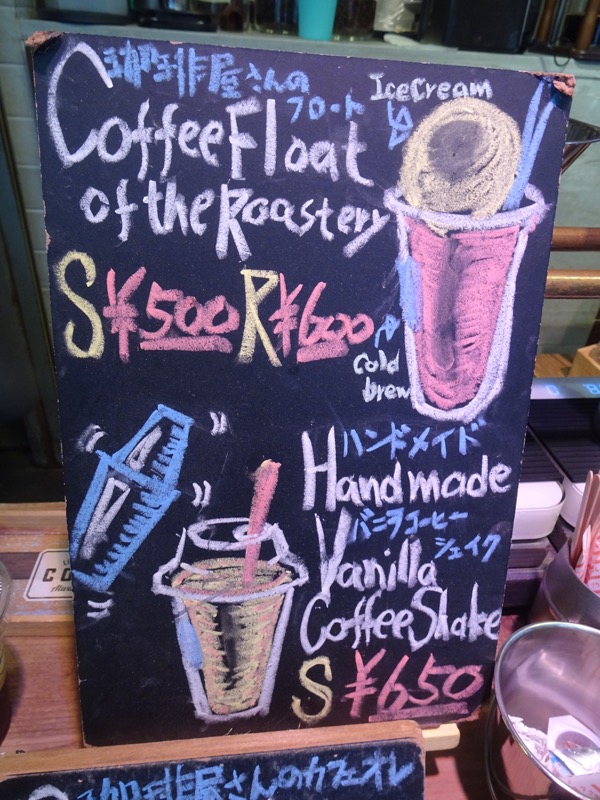 珈琲屋さんの
フロート
IceCream
Coffee Float
of the Roastery
S ¥500 R ¥600
cold
brew
ハンドメイド
Handmade
バニラコーヒー
シェイク
Vanilla
Coffee Shake
S ¥650
珈琲屋さんのカフェオレ